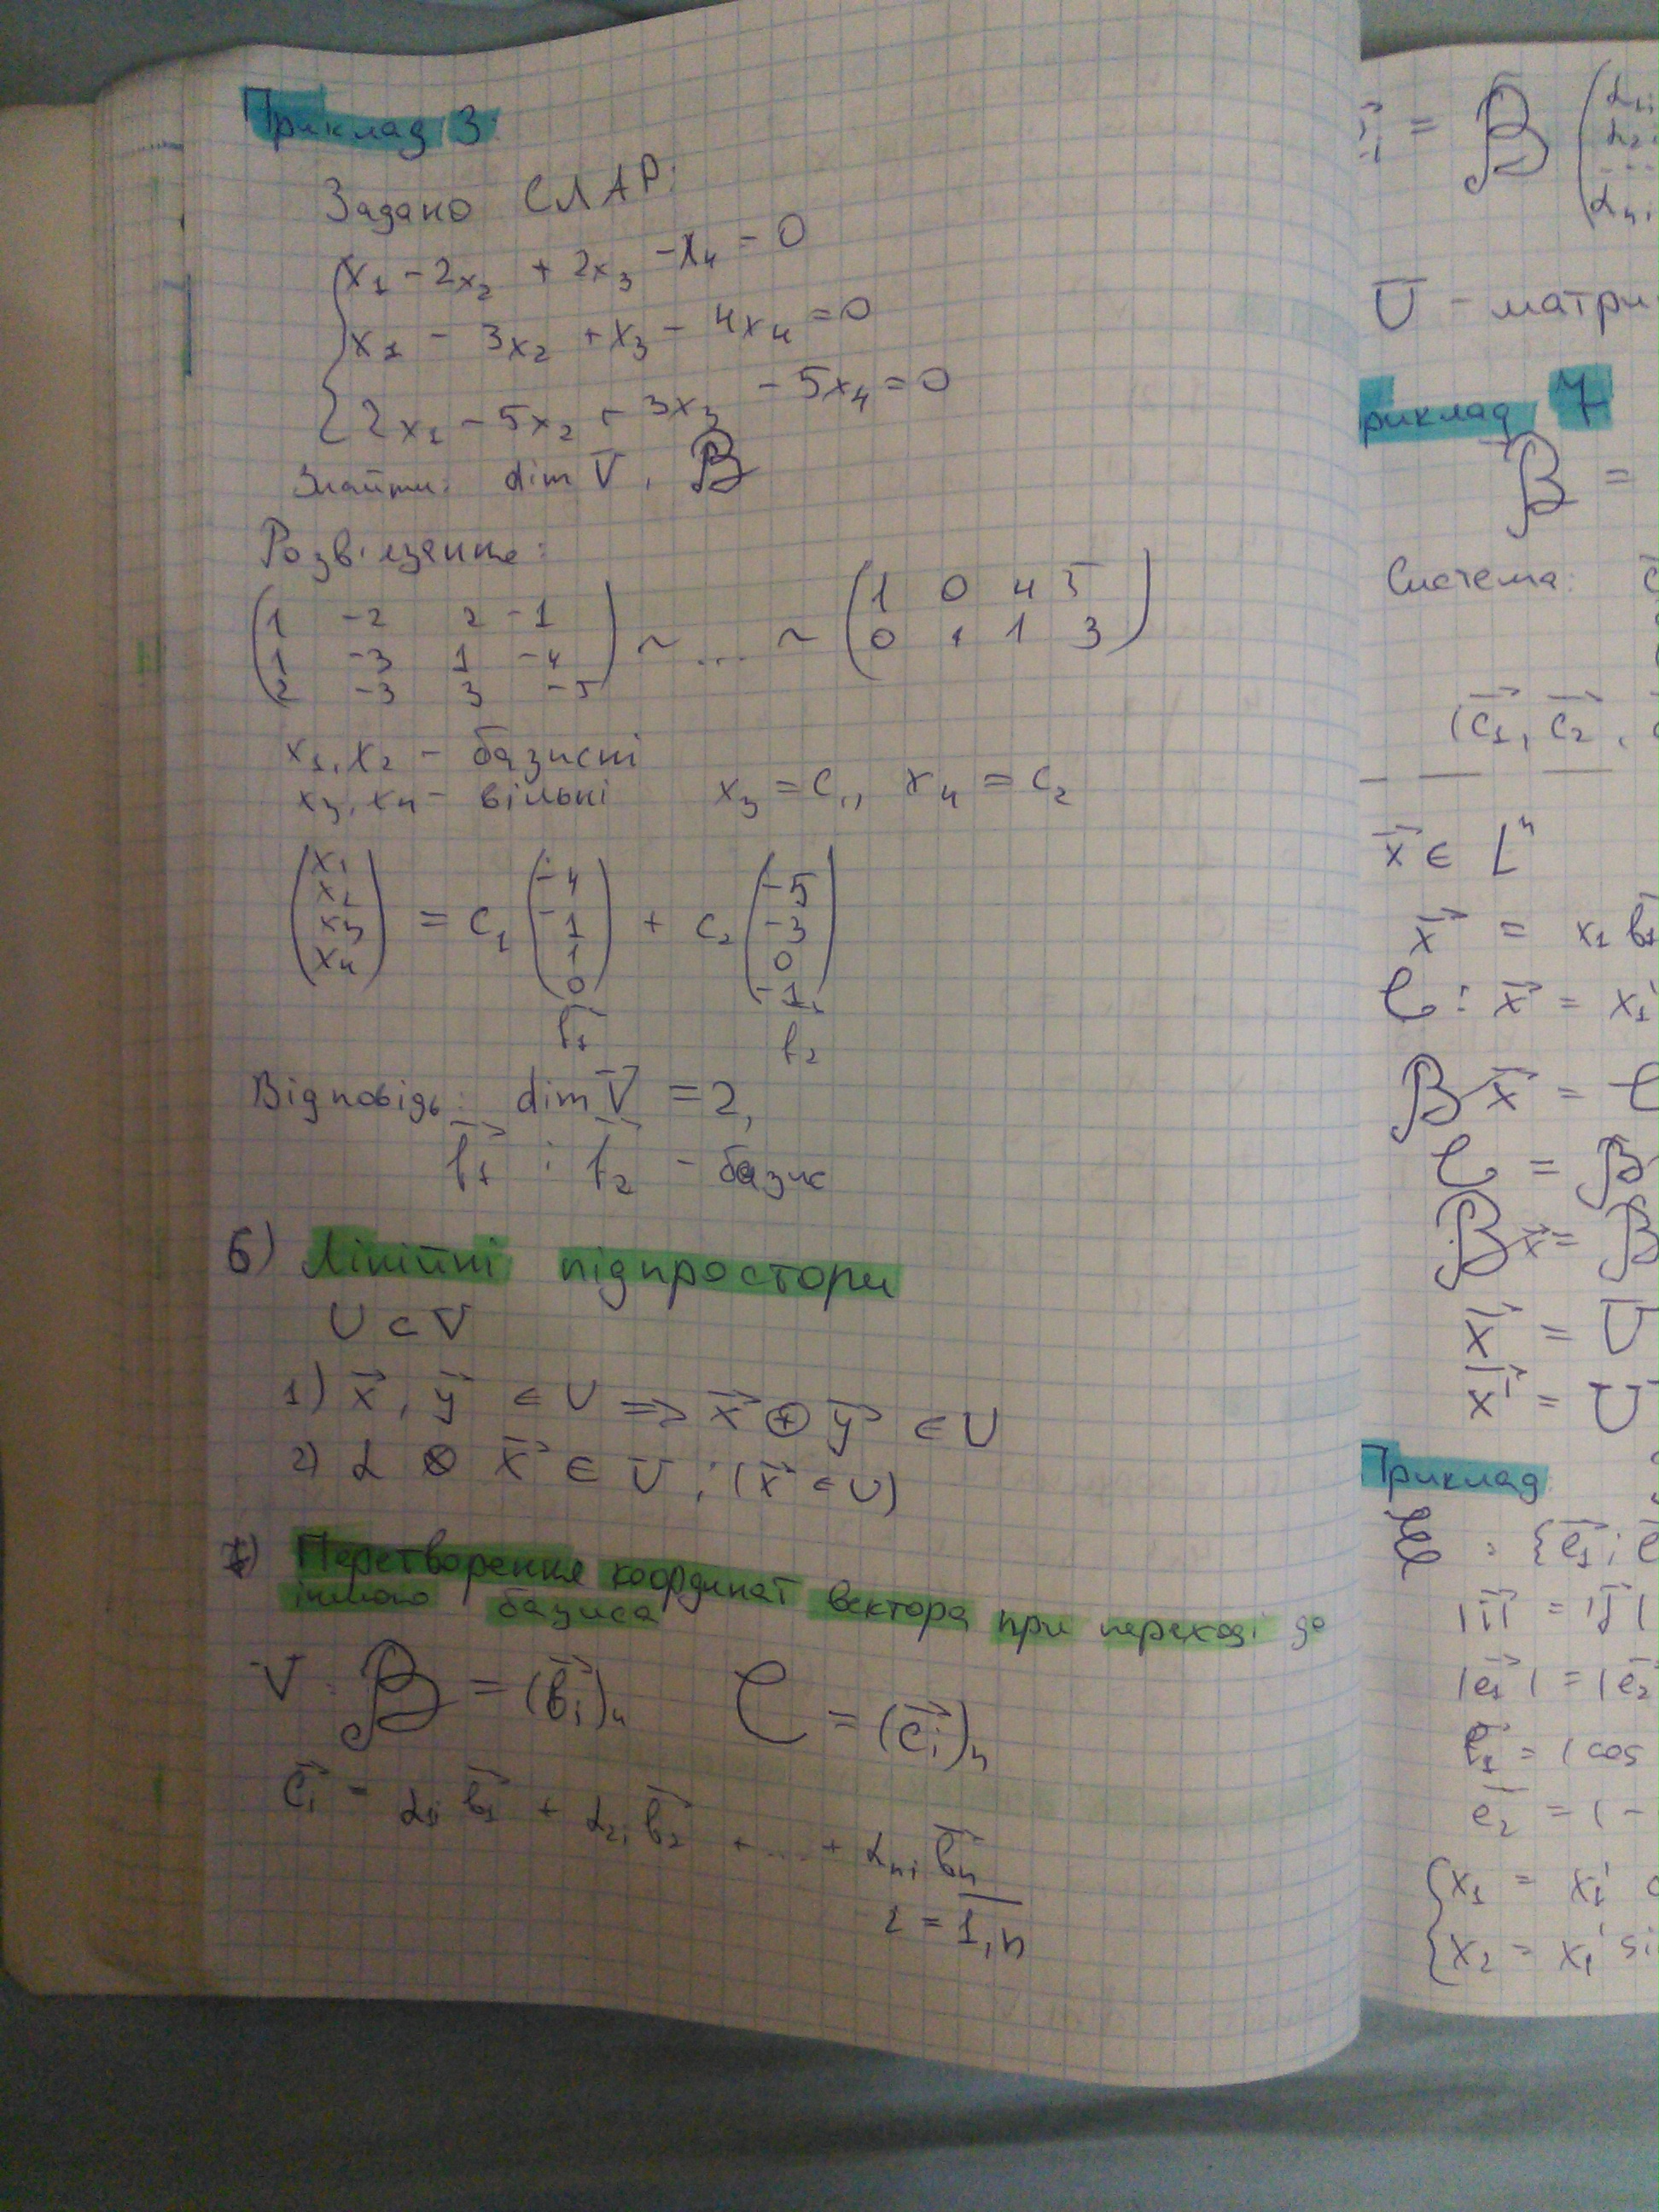 Приклад 3
Задано СЛАР:
x₁ - 2x₂ + 2x₃ - x₄ = 0
x₁ - 3x₂ + x₃ - 4x₄ = 0
2x₁ - 5x₂ + 3x₃ - 5x₄ = 0
Знайти: dim V, B
Розв'язання:
(1 -2 2 -1
1 -3 1 -4
2 -3 3 -5) ~ ... ~ (1 0 4 5
0 1 1 3)
x₁, x₂ - базисні
x₃, x₄ - вільні x₃ = c₁, x₄ = c₂
(x₁ x₂ x₃ x₄) = c₁ (-4 -1 1 0) + c₂ (-5 -3 0 -1)
f₁ f₂
Відповідь: dim V = 2,
f₁ i f₂ - базис
6) Лінійні підпростори
U ⊂ V
1) x, y ∈ U => x ⊕ y ∈ U
2) α ⊗ x ∈ U ; (x ∈ U)
7) Перетворення координат вектора при переході до
іншого базиса
V: B = (bᵢ)ₙ C = (cᵢ)ₙ
cᵢ = α₁ᵢ b₁ + α₂ᵢ b₂ + ... + αₙᵢ bₙ
i = 1,n
= B (α₁ᵢ
α₂ᵢ
...
αₙᵢ
U - матри
риклад 7
B =
Система:
(c₁, c₂,
x ∈ Lⁿ
x = x₁ b₁
C: x = x₁'
B x = C
C = B
B x = B
x = U
x' = U
Приклад
: {e₁; e
|i| = |j|
|e₁| = |e₂
e₁ = (cos
e₂ = (-
x₁ = x₁'
x₂ = x₁' si